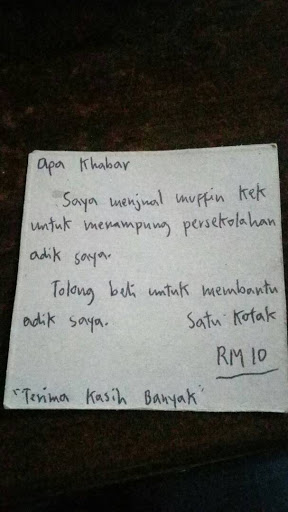 apa Khabar
Saya menjual muffin kek
untuk menampung persekolahan
adik saya.
Tolong beli untuk membantu
adik saya. Satu Kotak
RM 10
"Terima Kasih Banyak"